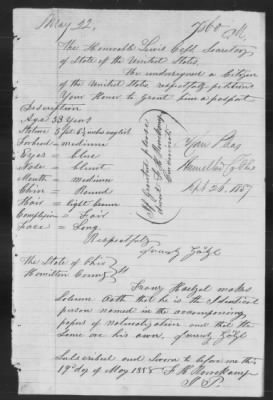 May 22.
The Honorable Lewis Cass Secretary
of State of the United States.
The undersigned a Citizen
of the United States respectfully petitions
Your Honor to grant him a passport
Description
Age 33 Years
Stature 5 feet 6½ inches english
Forhead = medium
Eyes = blue
Nose = blunt
Mouth = medium
Chin = Round
Hair = light brown
Complexion = Fair
Face = Long
Respectfully
The State of Ohio
Hamilton County
Franz makes
Solemn Oath that he is the Identical
person named in the accompanying
papers of naturalization and that the
same are his own.
Subscribed and Sworn to before me this
19th day of May 1858
J. P.